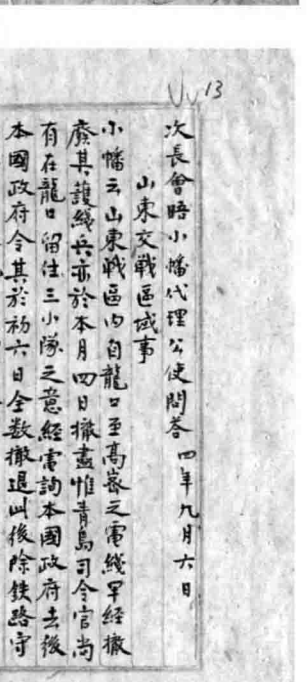 13
次長會晤小幡代理公使問答 四年九月六日
山東交戰區域事
小幡云山東戰區内自龍口至高密之電綫早經撤
廢其護綫兵亦於本月四日撤盡惟青島司令官尚
有在龍口留住三小隊之意經電詢本國政府去後
本國政府令其於初六日全数撤退此後除鉄路守